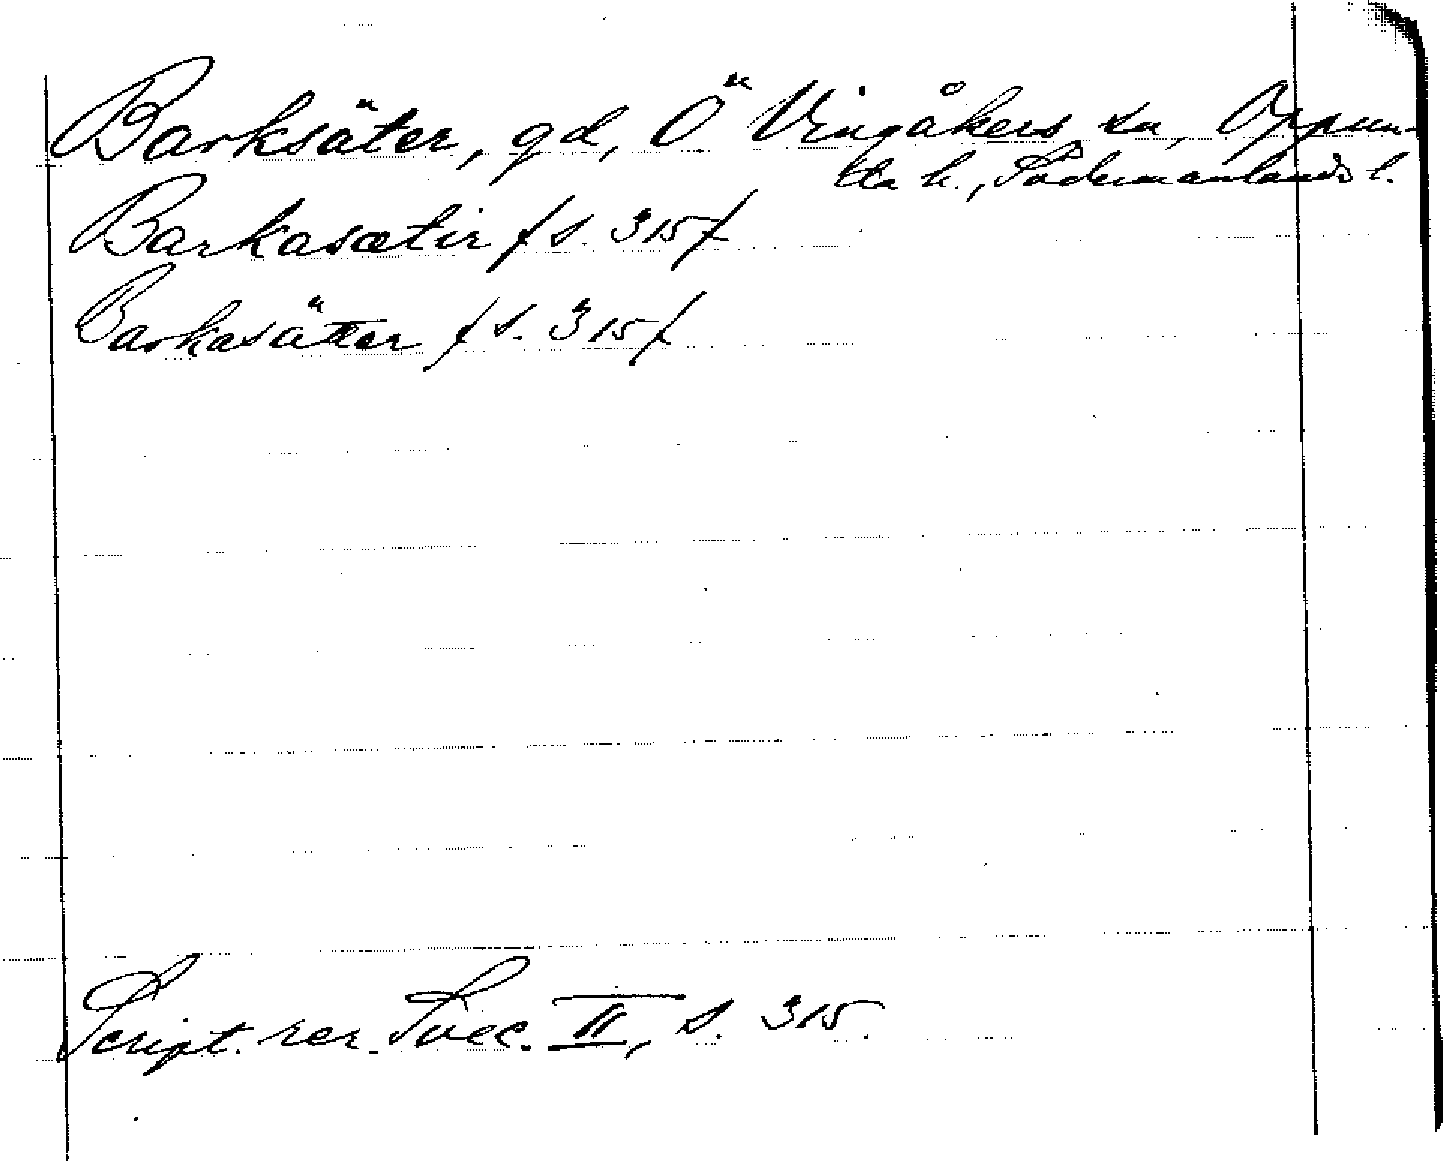 Barksäter, gd, Ö Vingåkers sn, Oppun-
da h., Södermanlands l.
Barkasætir /s. 315/
Barkasätter /s. 315/
Script. rer. Svec. II, s. 315.